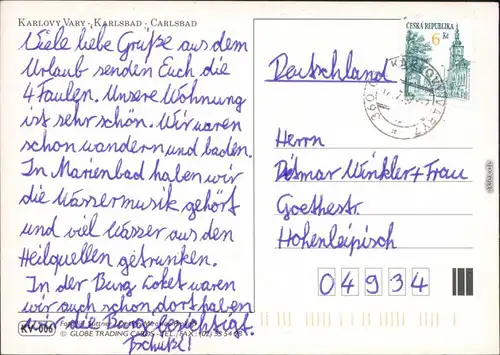 KARLOVY VARY - KARLSBAD - CARLSBAD
Viele liebe Grüße aus dem
Urlaub senden Euch die
4 Faulen. Unsere Wohnung
ist sehr schön. Wir waren
schon wandern und baden.
In Marienbad haben wir
die Wassermusik gehört
und viel Wasser aus den
Heilquellen getrunken.
In der Burg Loket waren
wir auch schon, dort haben
wir die Burg besichtigt.
Tschüß!
KV-006
© GLOBE TRADING CARDS - TEL./FAX
ČESKÁ REPUBLIKA
6 Kč
KARLOVY VARY
Deutschland
Herrn
Ditmar Winkler + Frau
Goethestr.
Hohenleipisch
04934